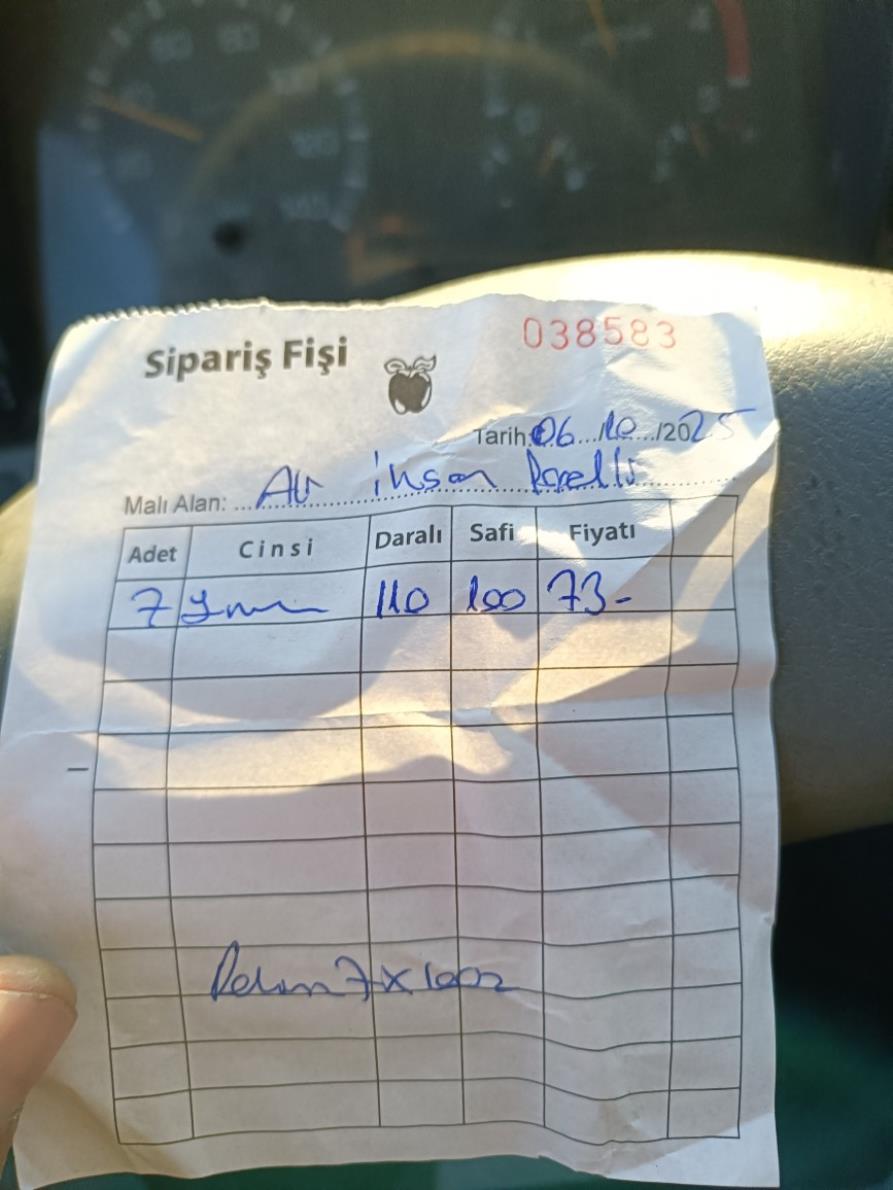 Sipariş Fişi
038583
Tarih: 06/10/2025
Malı Alan: Ali İhsan
Adet Cinsi Daralı Safi Fiyatı
7 110 100 73-
7x